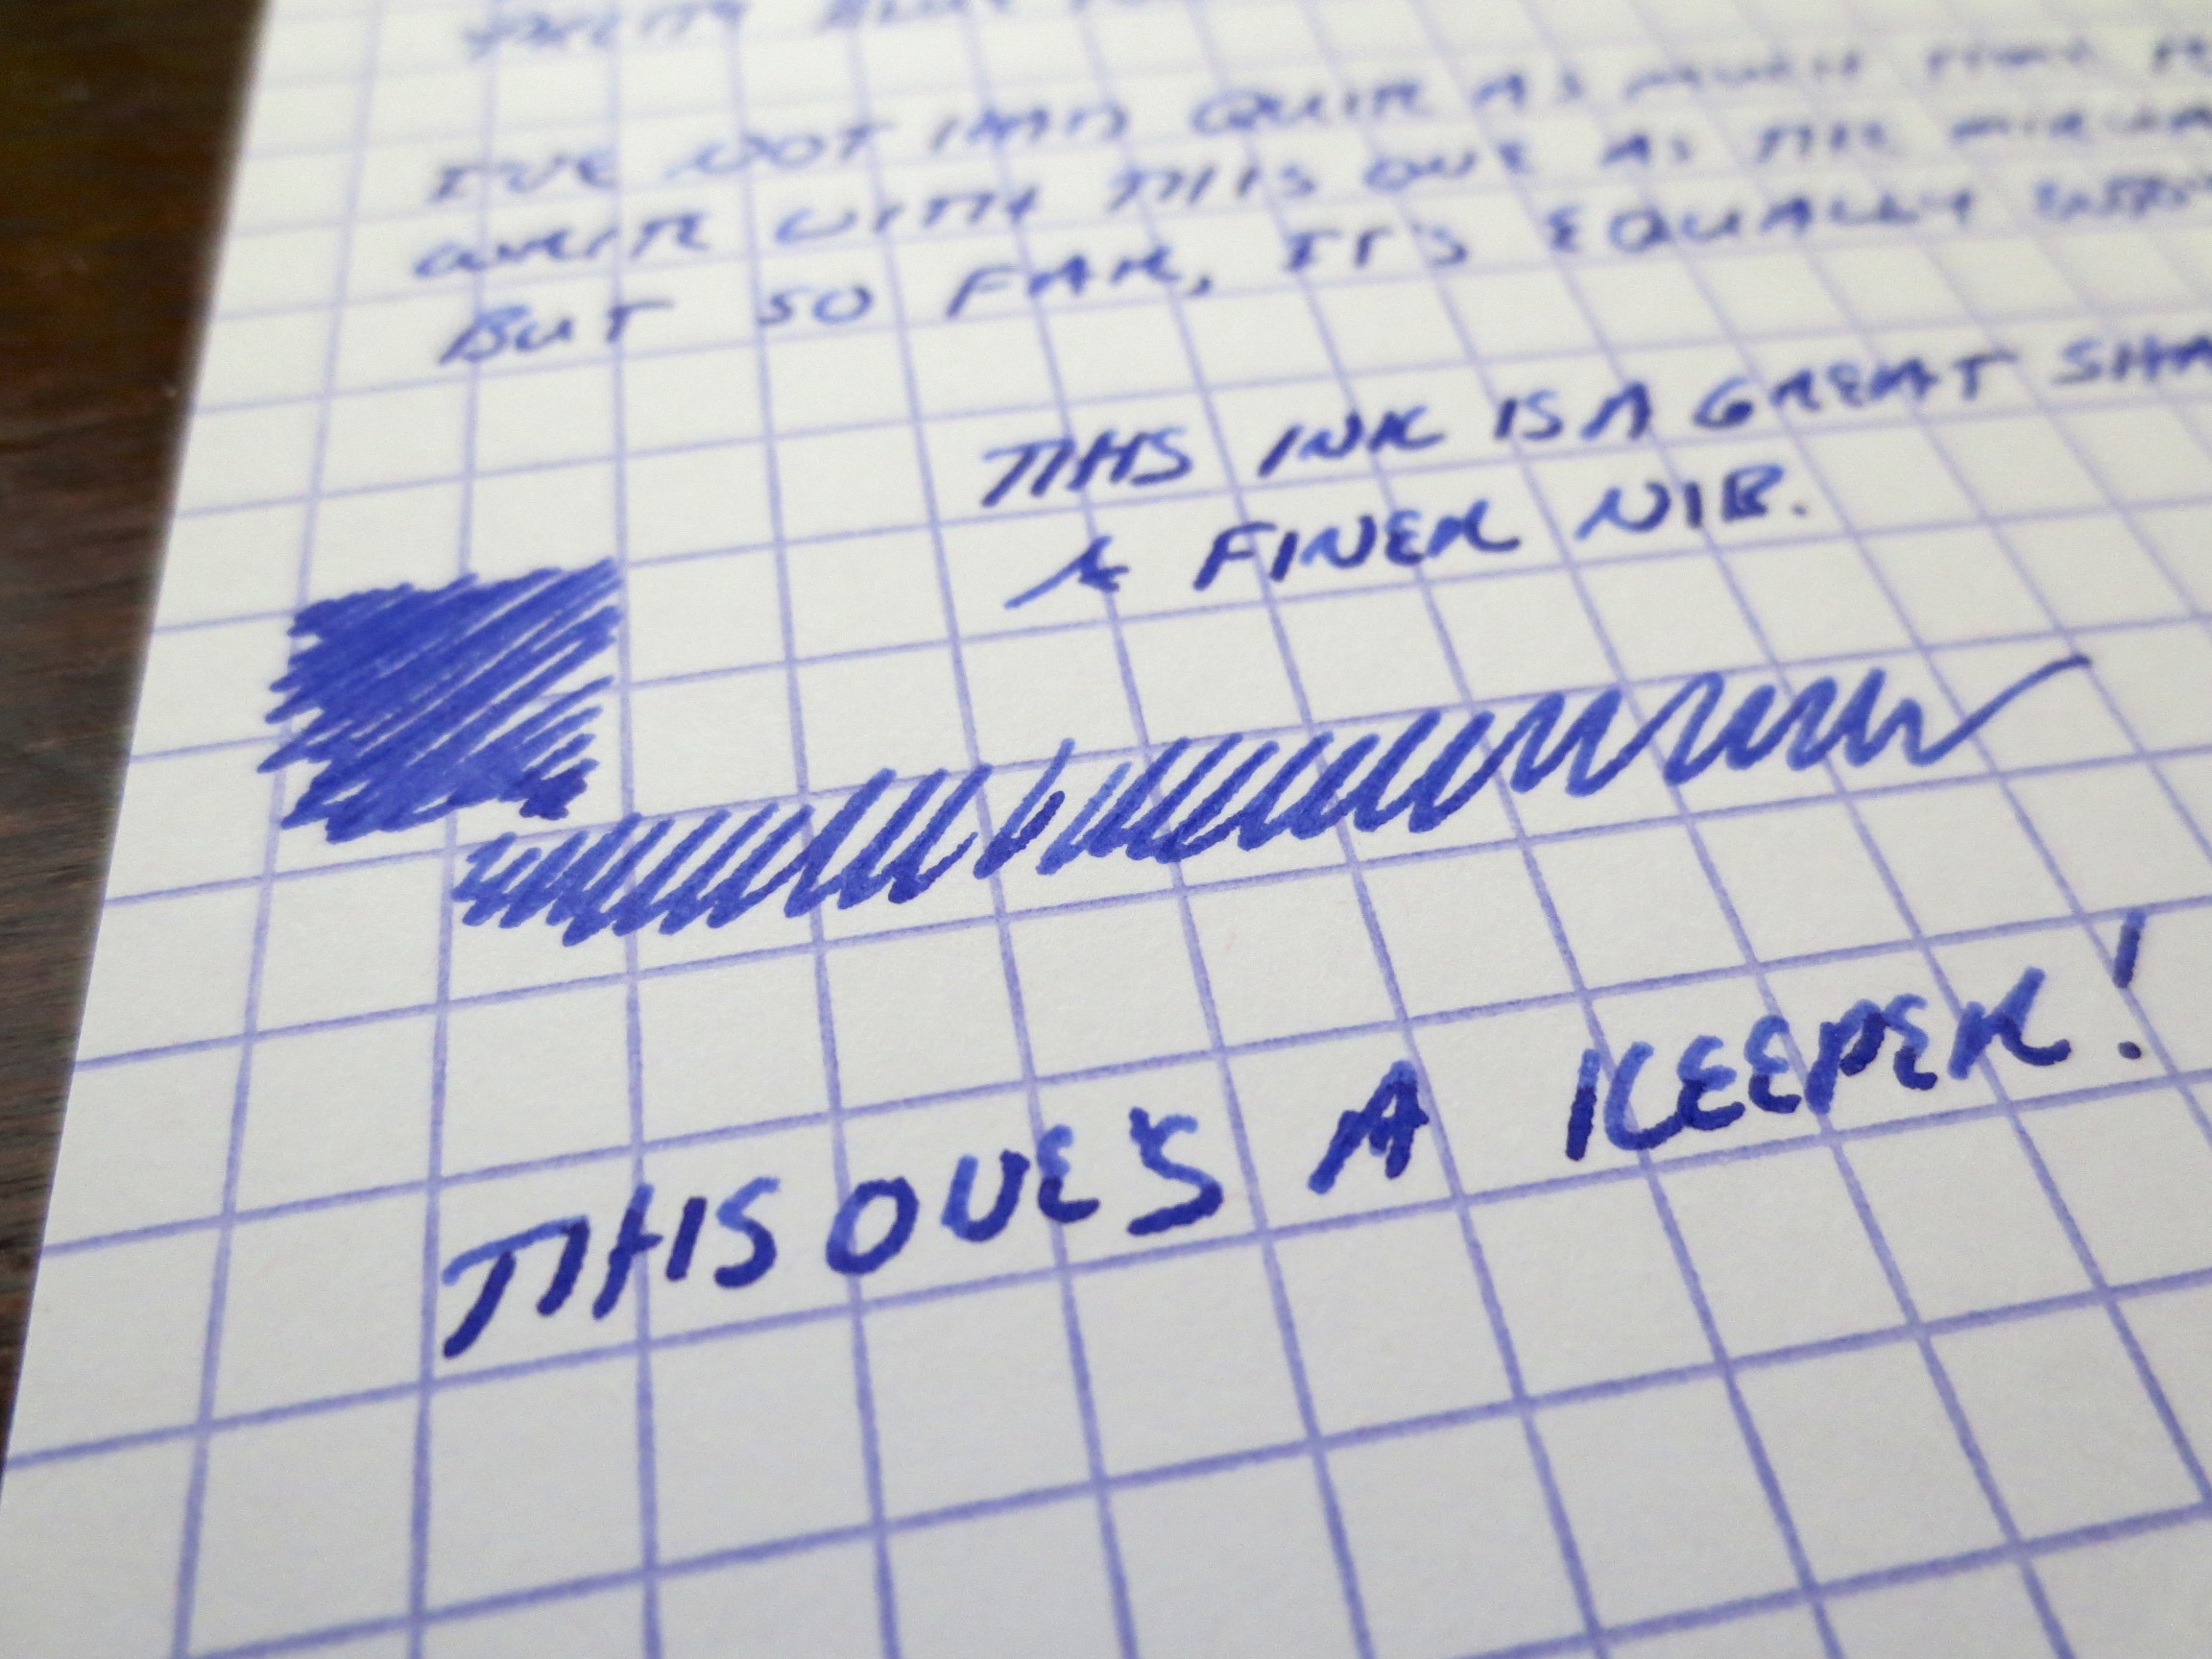 PRETTY BLUE
I'VE NOT HAD QUITE AS MUCH TIME
WRITE WITH THIS ONE AS THE
BUT SO FAR, IT'S EQUALLY
THIS INK IS A GREAT
A FINER NIB.
THIS ONE'S A KEEPER!